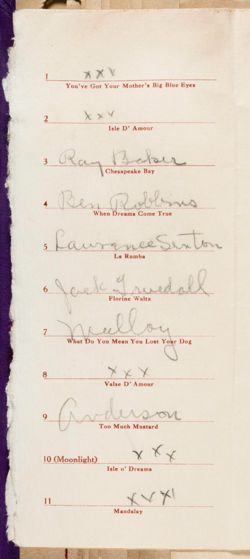 1 xxx
You've Got Your Mother's Big Blue Eyes
2 xxx
Isle D' Amour
3 Ray Baker
Chesapeake Bay
4 Ben Robbins
When Dreams Come True
5 Lawrence Sexton
La Rumba
6 Jack
Florine Waltz
7 Malloy
What Do You Mean You Lost Your Dog
8 xxx
Valse D' Amour
9 Anderson
Too Much Mustard
10 (Moonlight) xxx
Isle o' Dreams
11 xxx
Mandalay